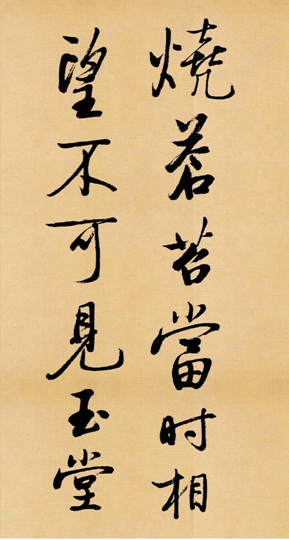 燒蒼苔當时相
望不可見玉堂